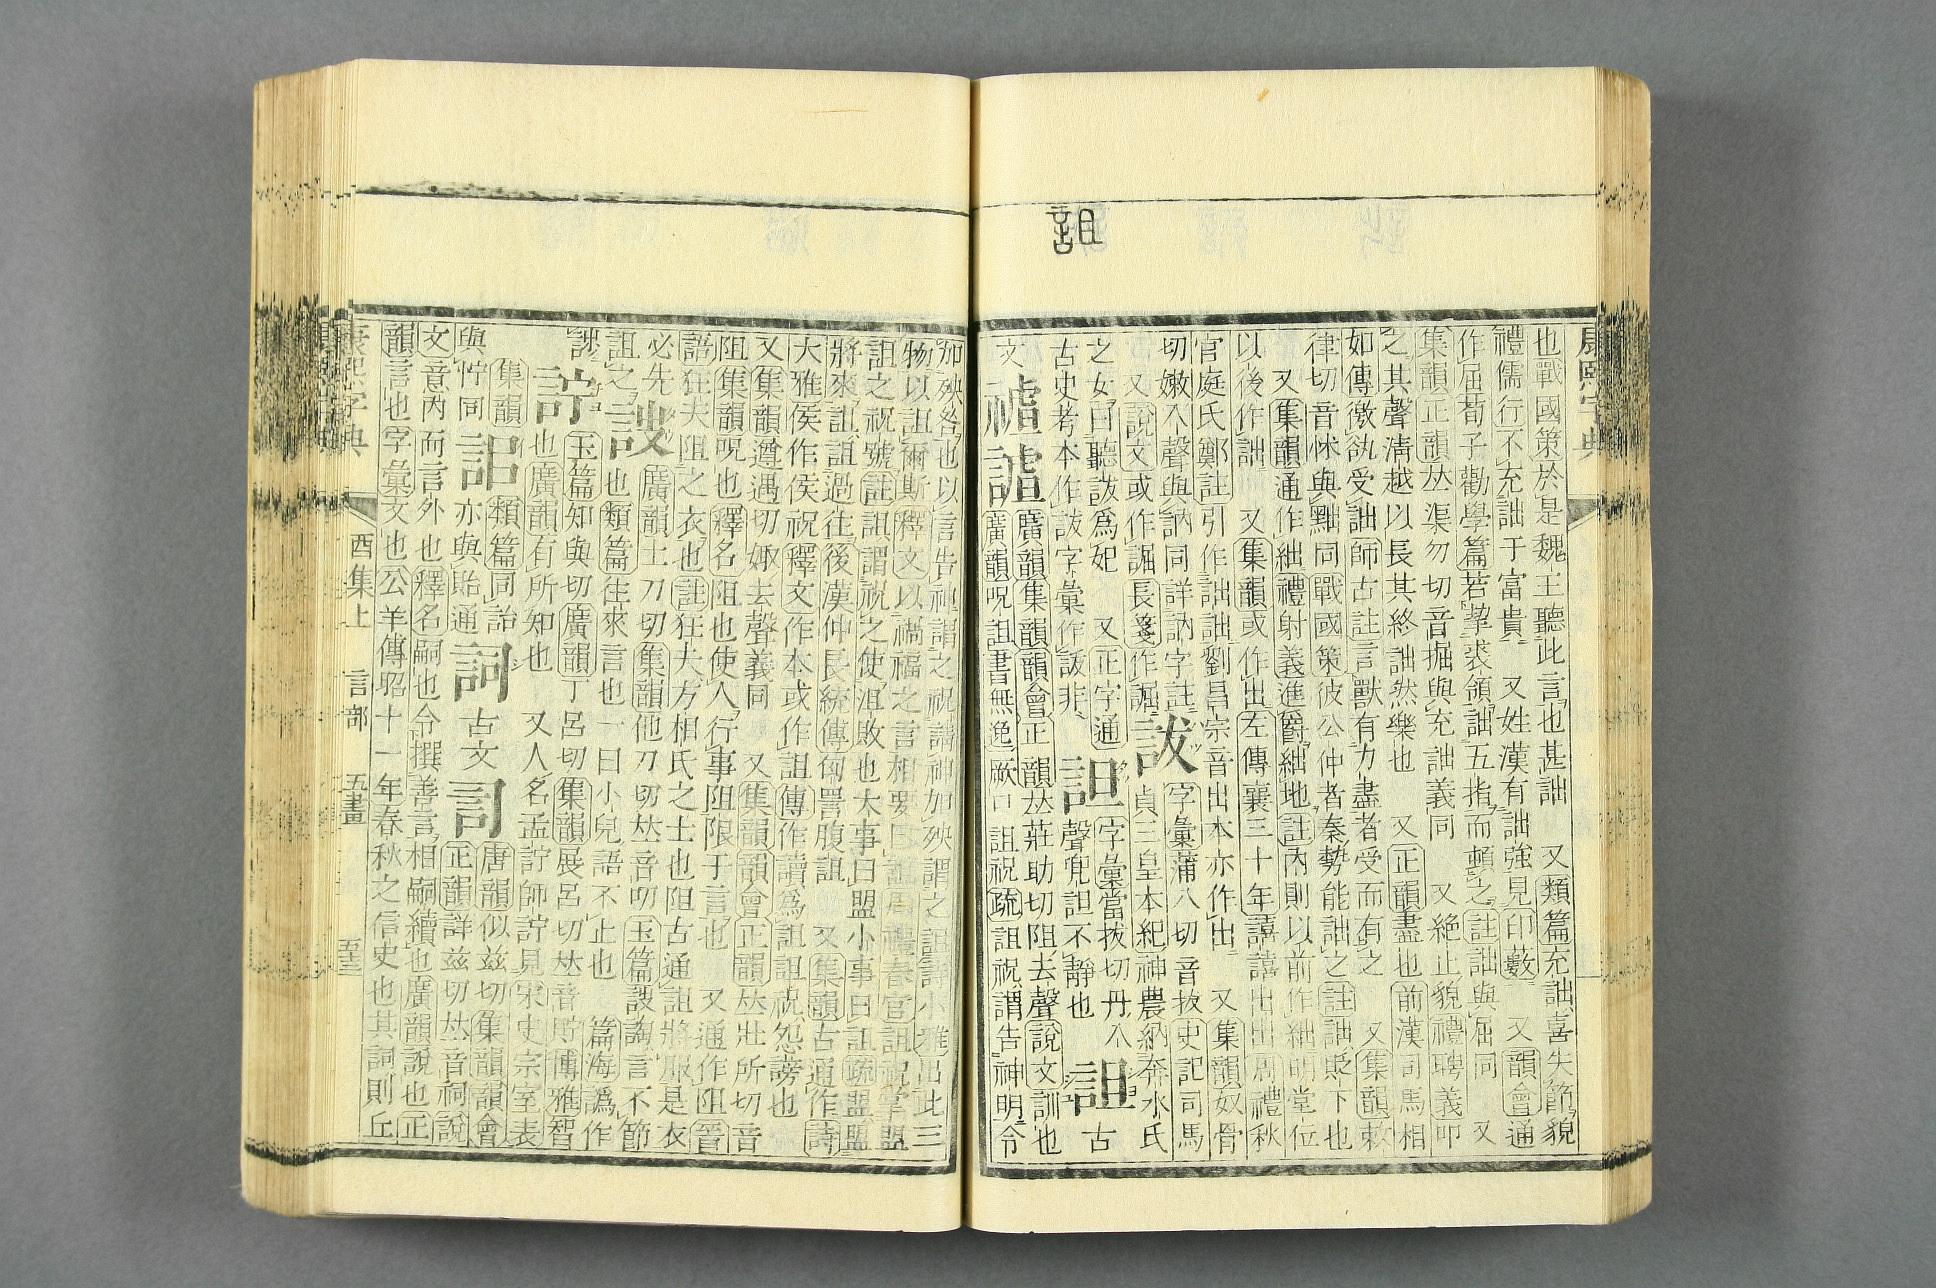 詛
康熙字典
也戰國策於是魏王聽此言也甚詘 又類篇充詘喜失節貌
禮儒行不充詘于富貴 又姓漢有詘強見印藪 又韻會通
作屈荀子勸學篇若挈裘領詘五指而頓之註詘與屈同 又
集韻正韻𠀤渠勿切音掘與充詘義同 又絕止貌禮聘義叩
之其聲清越以長其終詘然樂也 又正韻盡也前漢司馬相
如傳徼受詘師古註言獸有力盡者受而有之 又集韻敕
律切音怵與黜同戰國策彼公仲者秦勢能詘之註詘貶下也
又集韻通作絀禮射義進爵絀地註內則以前作絀明堂位
以後作詘 又集韻或作出左傳襄三十年譆譆出出周禮秋
官庭氏鄭註引作詘詘劉昌宗音出本亦作出 又集韻奴骨
切嫩入聲與訥同詳訥字註 詙 字彙蒲八切音拔史記司馬
又說文或作誳長箋作誳 貞三皇本紀神農納奔水氏
之女曰聽詙爲妃 又正字通 詚 字彙當拔切丹入
古史考本作詙字彙作詙非 聲詚不靜也 詛 古
文 廣韻集韻韻會正韻𠀤莊助切阻去聲說文訓也
廣韻呪詛書無逸厥口詛祝疏詛祝謂告神明令
加殃咎也以言告神謂之祝請神加殃謂之詛詩小雅出此三
物以詛爾斯釋文以禍福之言相要曰詛周禮春官詛祝掌盟
詛之祝號註詛謂祝之使沮敗也大事曰盟小事曰詛疏盟盟
將來詛詛過往後漢仲長統傳詈腹詛 又集韻古通作詩
大雅侯作侯祝釋文作本或作詛傳作讀爲詛詛祝怨謗也
又集韻遵遇切娵去聲義同 又集韻韻會正韻𠀤壯所切音
阻集韻呪也釋名阻也使人行事阻限于言也 又通作阻晉
語狂夫阻之衣也註狂夫方相氏之士也阻古通詛將服是衣
必先詛之 䛬 廣韻土刀切集韻他刀切𠀤音叨玉篇詜譸言不節
也類篇往來言也一曰小兒語不止也 篇海譌作
詜 詝 玉篇知與切廣韻丁呂切集韻展呂切𠀤音貯博雅智
也廣韻有所知也 又人名孟詝師詝見宋史宗室表
集韻與佇同 䛊 類篇同詒亦與貽通 詞 古文 𤔲 唐韻似兹切集韻韻會
正韻詳兹切𠀤音祠說
文意內而言外也釋名嗣也令撰善言相嗣續也廣韻說也正
韻言也字彙文也公羊傳昭十一年春秋之信史也其詞則丘
康熙字典 酉集上 言部 五畫